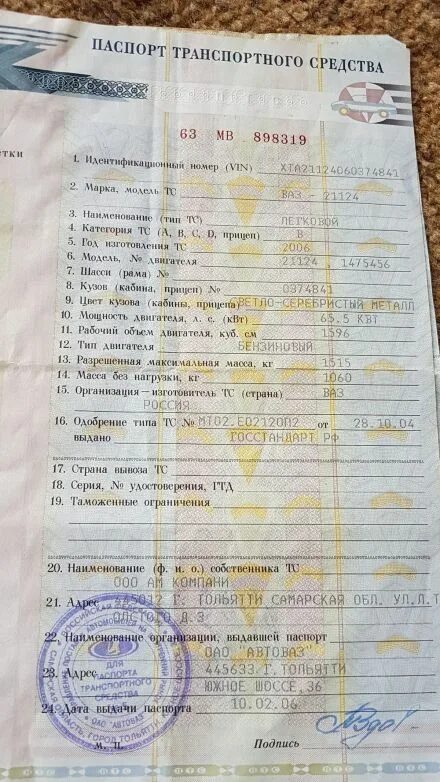 ПАСПОРТ ТРАНСПОРТНОГО СРЕДСТВА
63 МВ 898319
етки
1. Идентификационный номер (VIN) XTA21124060374841
2. Марка, модель ТС ВАЗ - 21124
3. Наименование (тип ТС) ЛЕГКОВОЙ
4. Категория ТС (А, В, С, D, прицеп) В
5. Год изготовления ТС 2006
6. Модель, № двигателя 21124 1475456
7. Шасси (рама) №
8. Кузов (кабина, прицеп) № 0374841
9. Цвет кузова (кабины, прицепа) ВЕТЛО-СЕРЕБРИСТЫЙ МЕТАЛЛ
10. Мощность двигателя, л. с. (кВт) 65.5 КВТ
11. Рабочий объем двигателя, куб. см 1596
12. Тип двигателя БЕНЗИНОВЫЙ
13. Разрешенная максимальная масса, кг 1515
14. Масса без нагрузки, кг 1060
15. Организация—изготовитель ТС (страна) ВАЗ
РОССИЯ
16. Одобрение типа ТС № МТ02.Е02120П2 от 28.10.04
выдано ГОССТАНДАРТ РФ
17. Страна вывоза ТС
18. Серия, № удостоверения, ГТД
19. Таможенные ограничения
20. Наименование (ф. и. о.) собственника ТС
ООО АМ КОМПАНИ
21. Адрес 445012 Г. ТОЛЬЯТТИ САМАРСКАЯ ОБЛ. УЛ.Л.Т
ОЛСТОГО Д.3
22. Наименование организации, выдавшей паспорт
ОАО АВТОВАЗ
23. Адрес 445633.Г.ТОЛЬЯТТИ
ЮЖНОЕ ШОССЕ,36
24. Дата выдачи паспорта 10.02.06
М. П. Подпись
ДЛЯ
ПАСПОРТА
ТРАНСПОРТНОГО
СРЕДСТВА
ОАО "АВТОВАЗ"
САМАРСКАЯ ОБЛАСТЬ, ГОРОД ТОЛЬЯТТИ